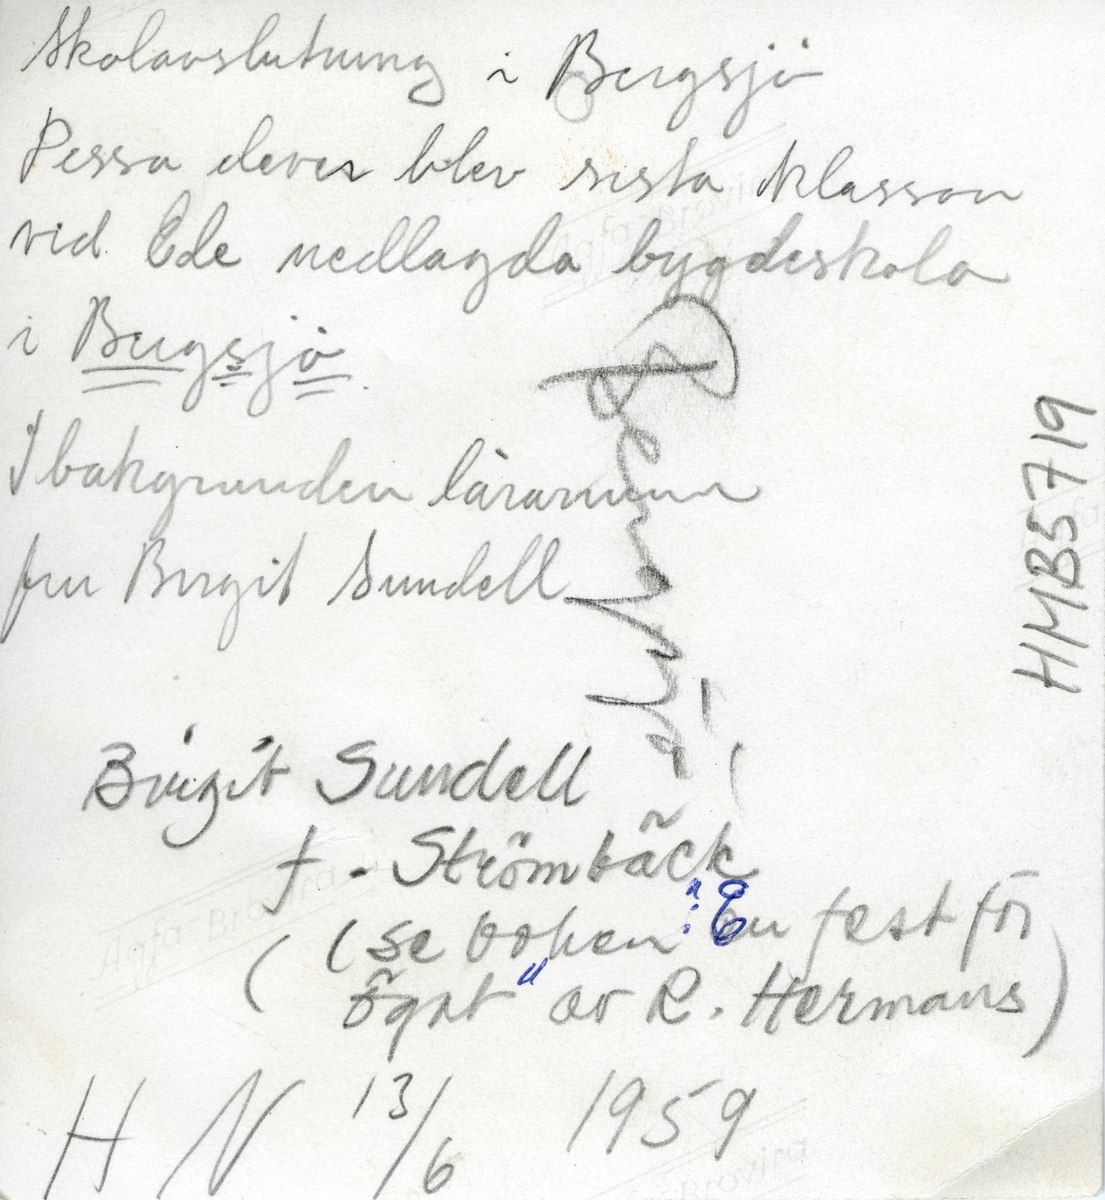 Skolavslutning i Bergsjö
Dessa elever blev sista klassen
vid Ede nedlagda bygdeskola
i Bergsjö.
I bakgrunden lärarinnan
fru Birgit Sundell
Bergsjö
HMB5719
Birgit Sundell
f. Strömbäck
(se boken: "En fest för
ögat" av R. Hermans)
H N 13/6 1959